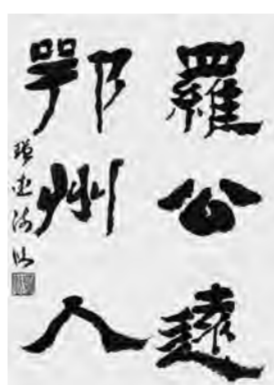 羅公遠
鄂州人